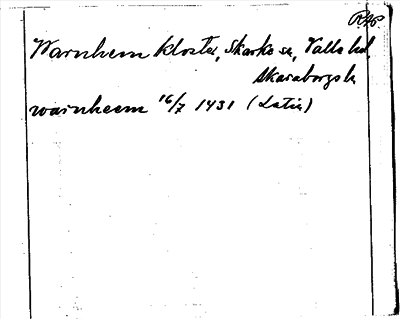 RAP.
Warnhem kloster, Skarke sn, Valle hd,
Skaraborgs l.
warnheem 16/7 1431 (Latin)